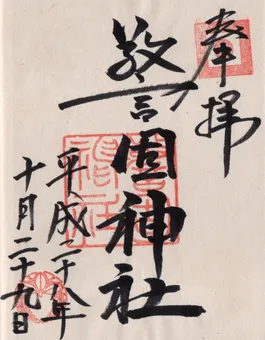 奉拝
警固神社
平成二十八年
十月二十九日